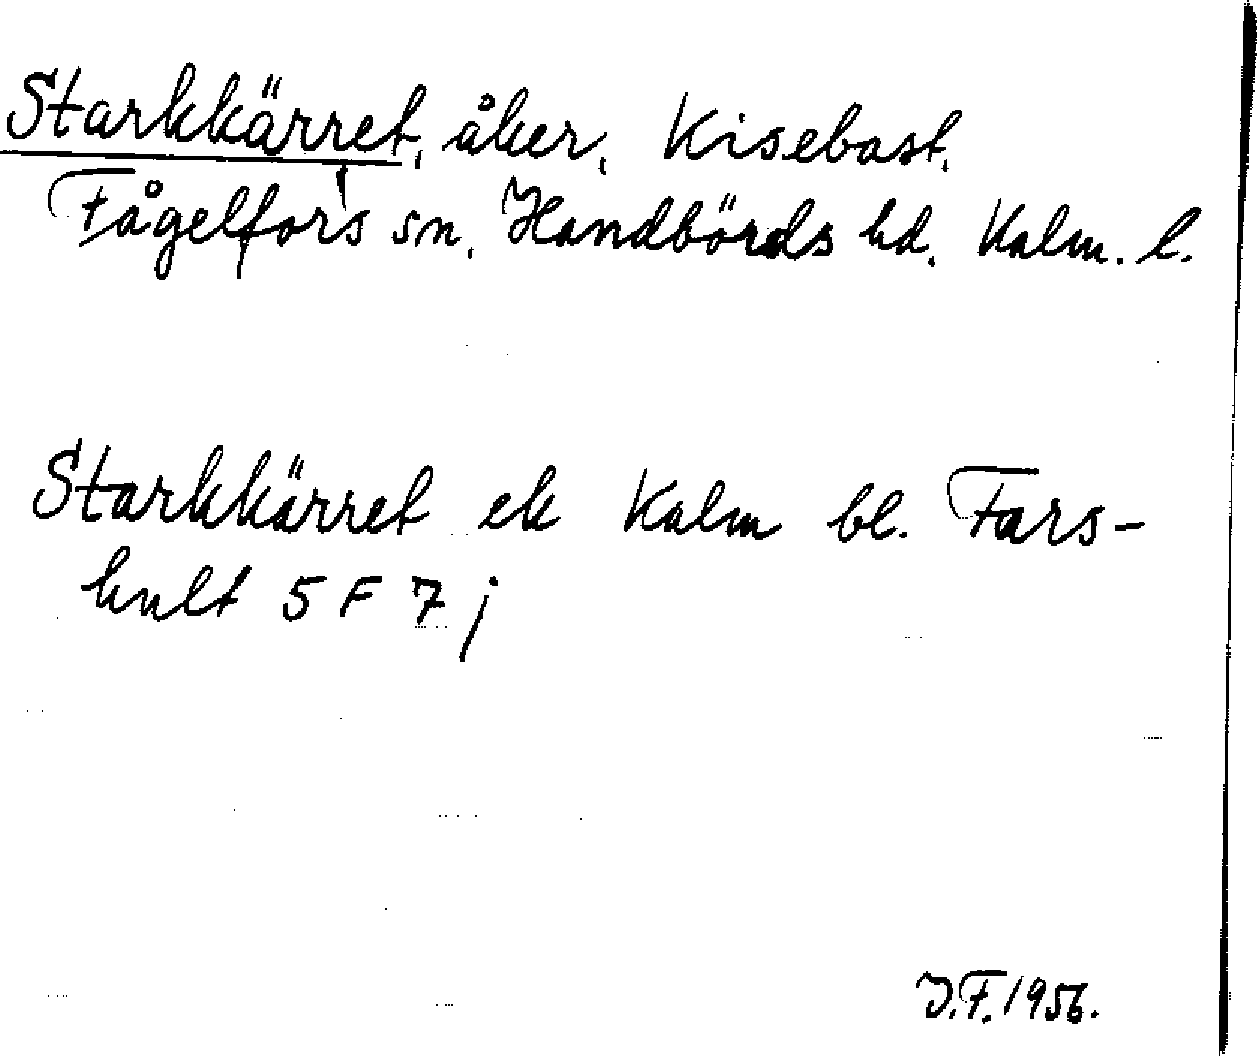 Starkkärret, åker, Kisebast,
Fågelfors sn, Handbörds hd, Kalm. l.
Starkkärret ek Kalm bl. Fars-
hult 5 F 7 j
J.F. 1956.